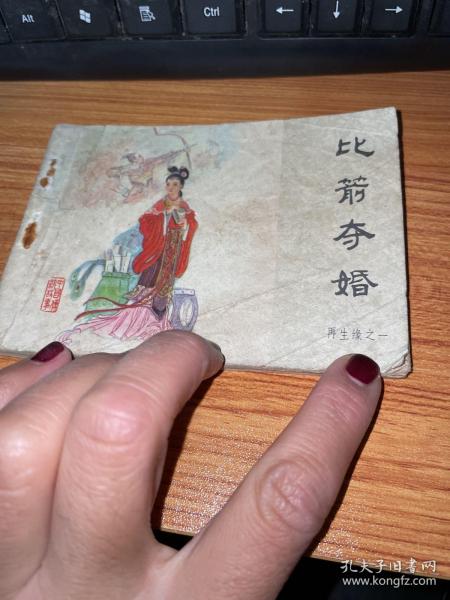 Alt
Ctrl
比箭夺婚
再生缘之一
孔夫子旧书网
www.kongfz.com